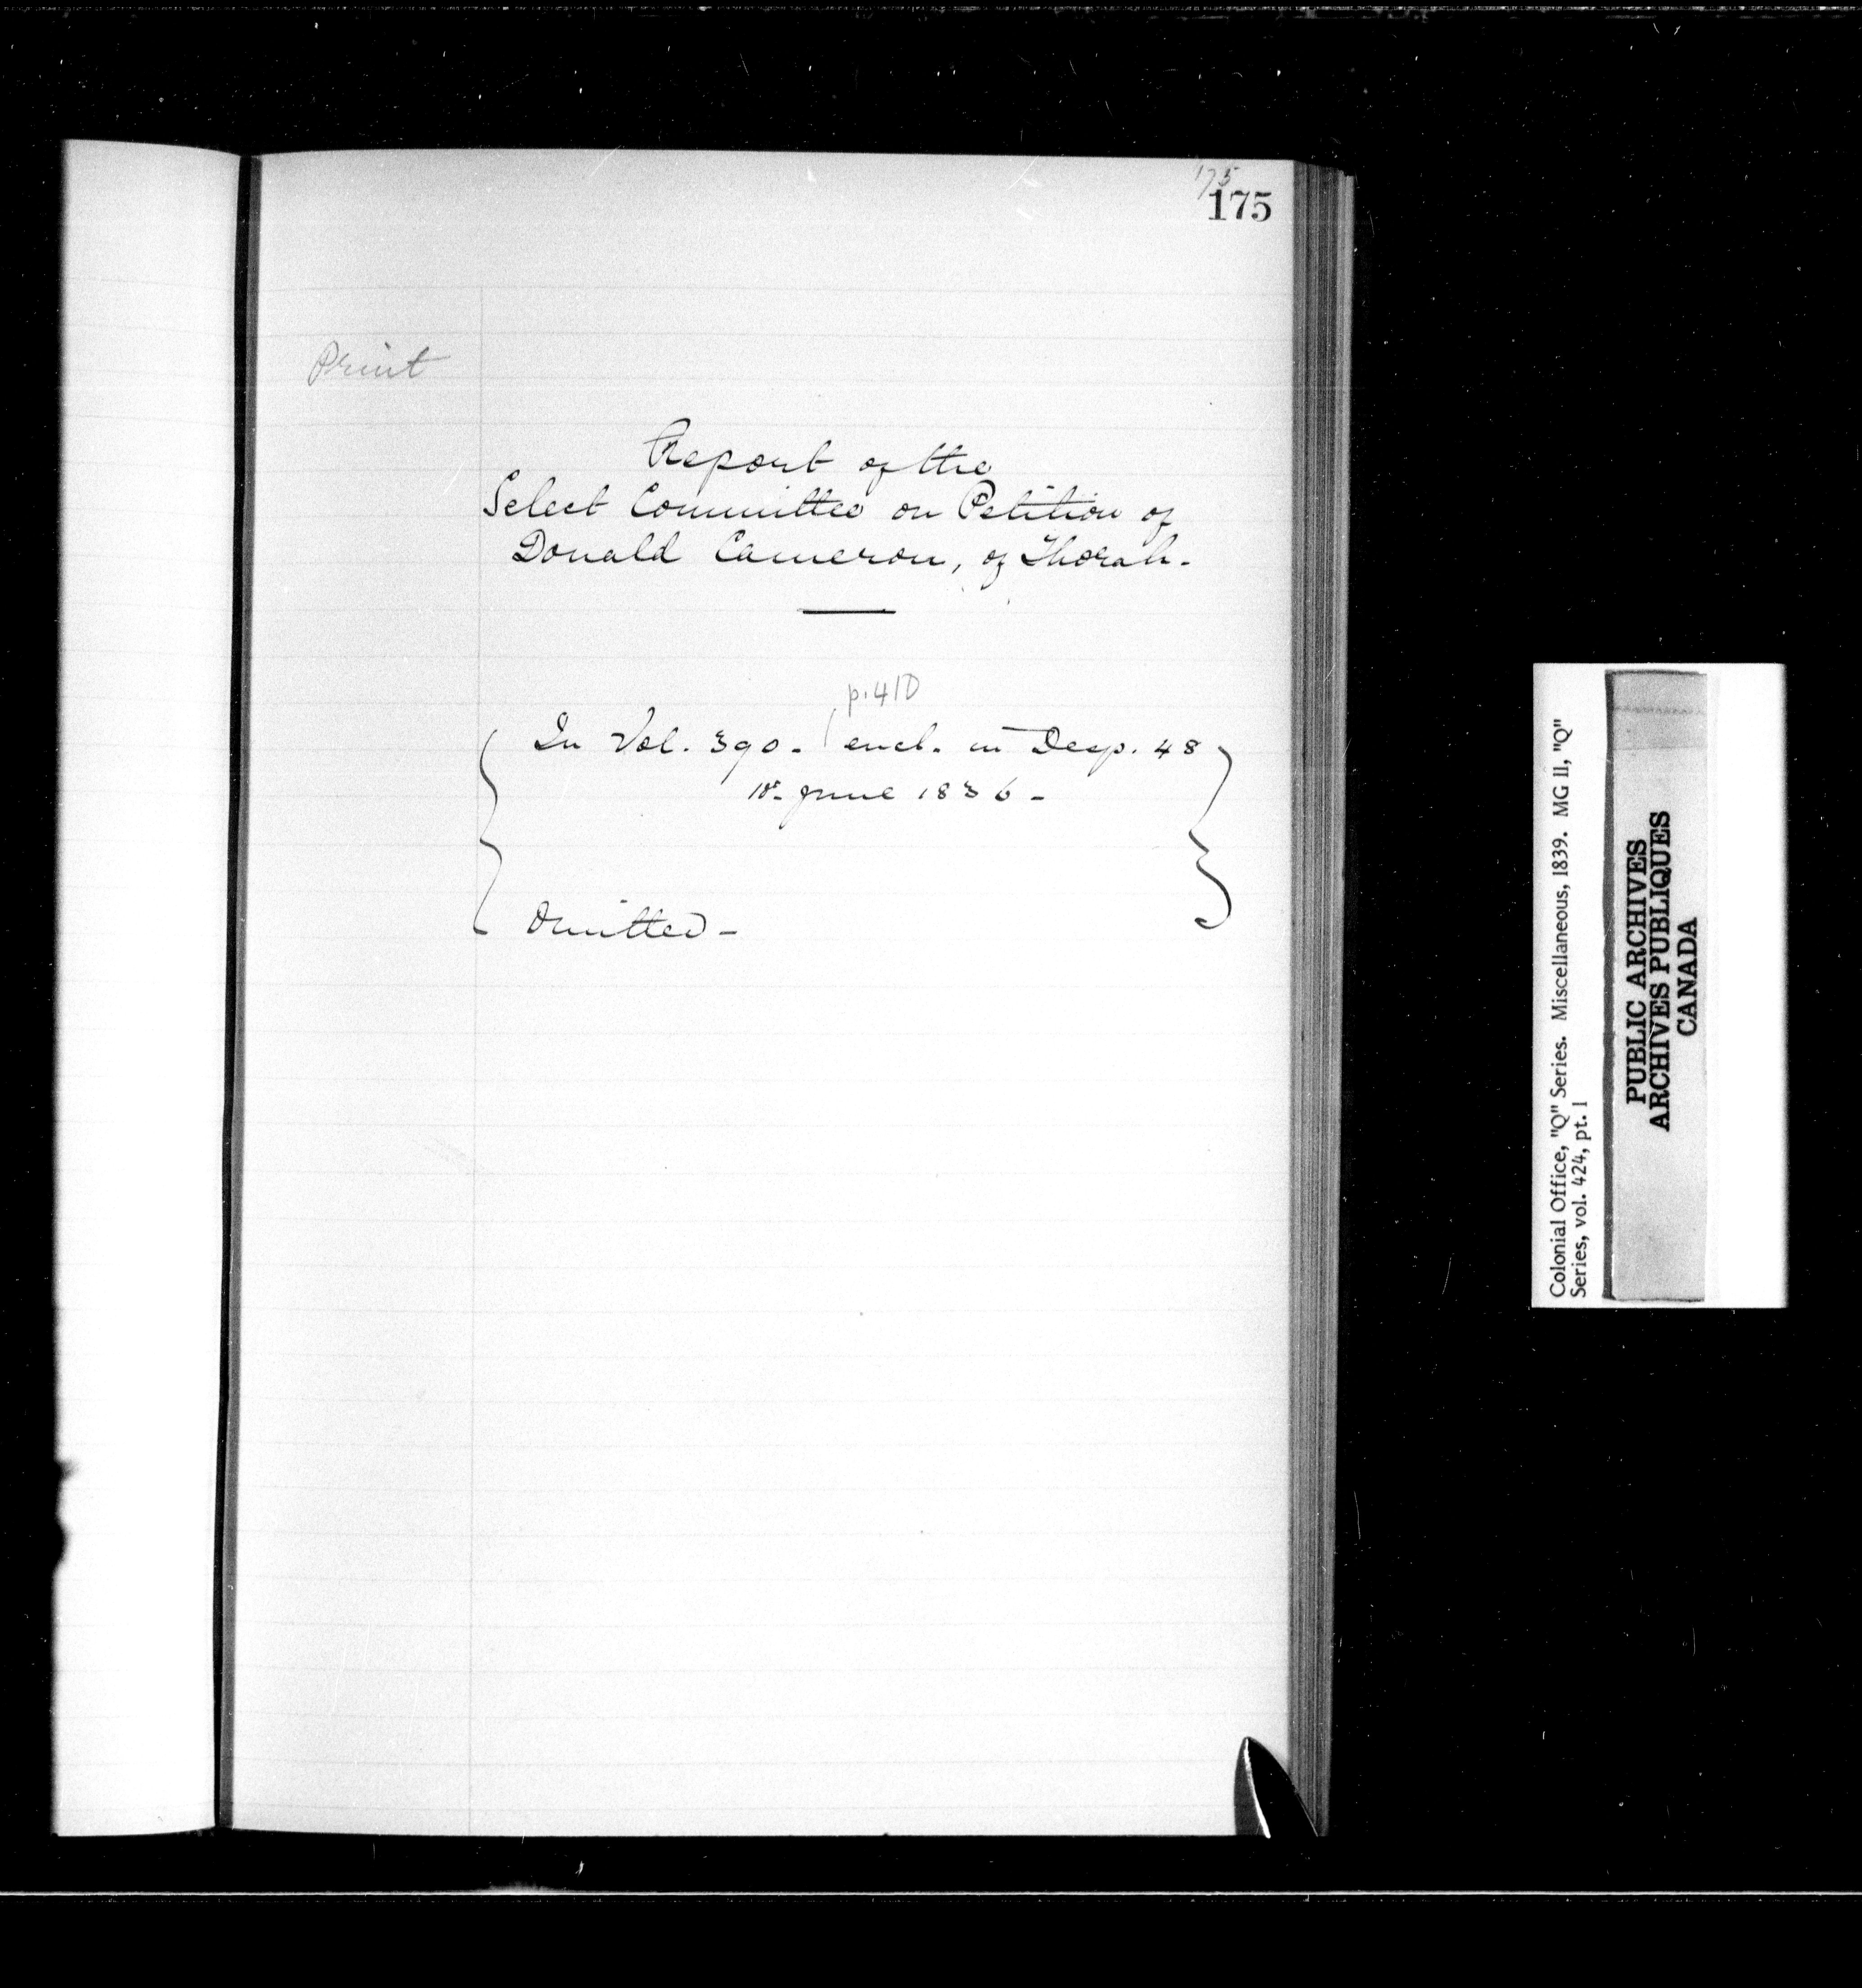 175
175
Print
Report of the
Select Committee on Petition of
Donald Cameron, of Thorah.
p. 410
In Vol. 390. encl. in Desp. 48
June 1836 -
Omitted -
Colonial Office, "Q" Series. Miscellaneous, 1839. MG 11, "Q"
Series, vol. 424, pt. 1
PUBLIC ARCHIVES
ARCHIVES PUBLIQUES
CANADA